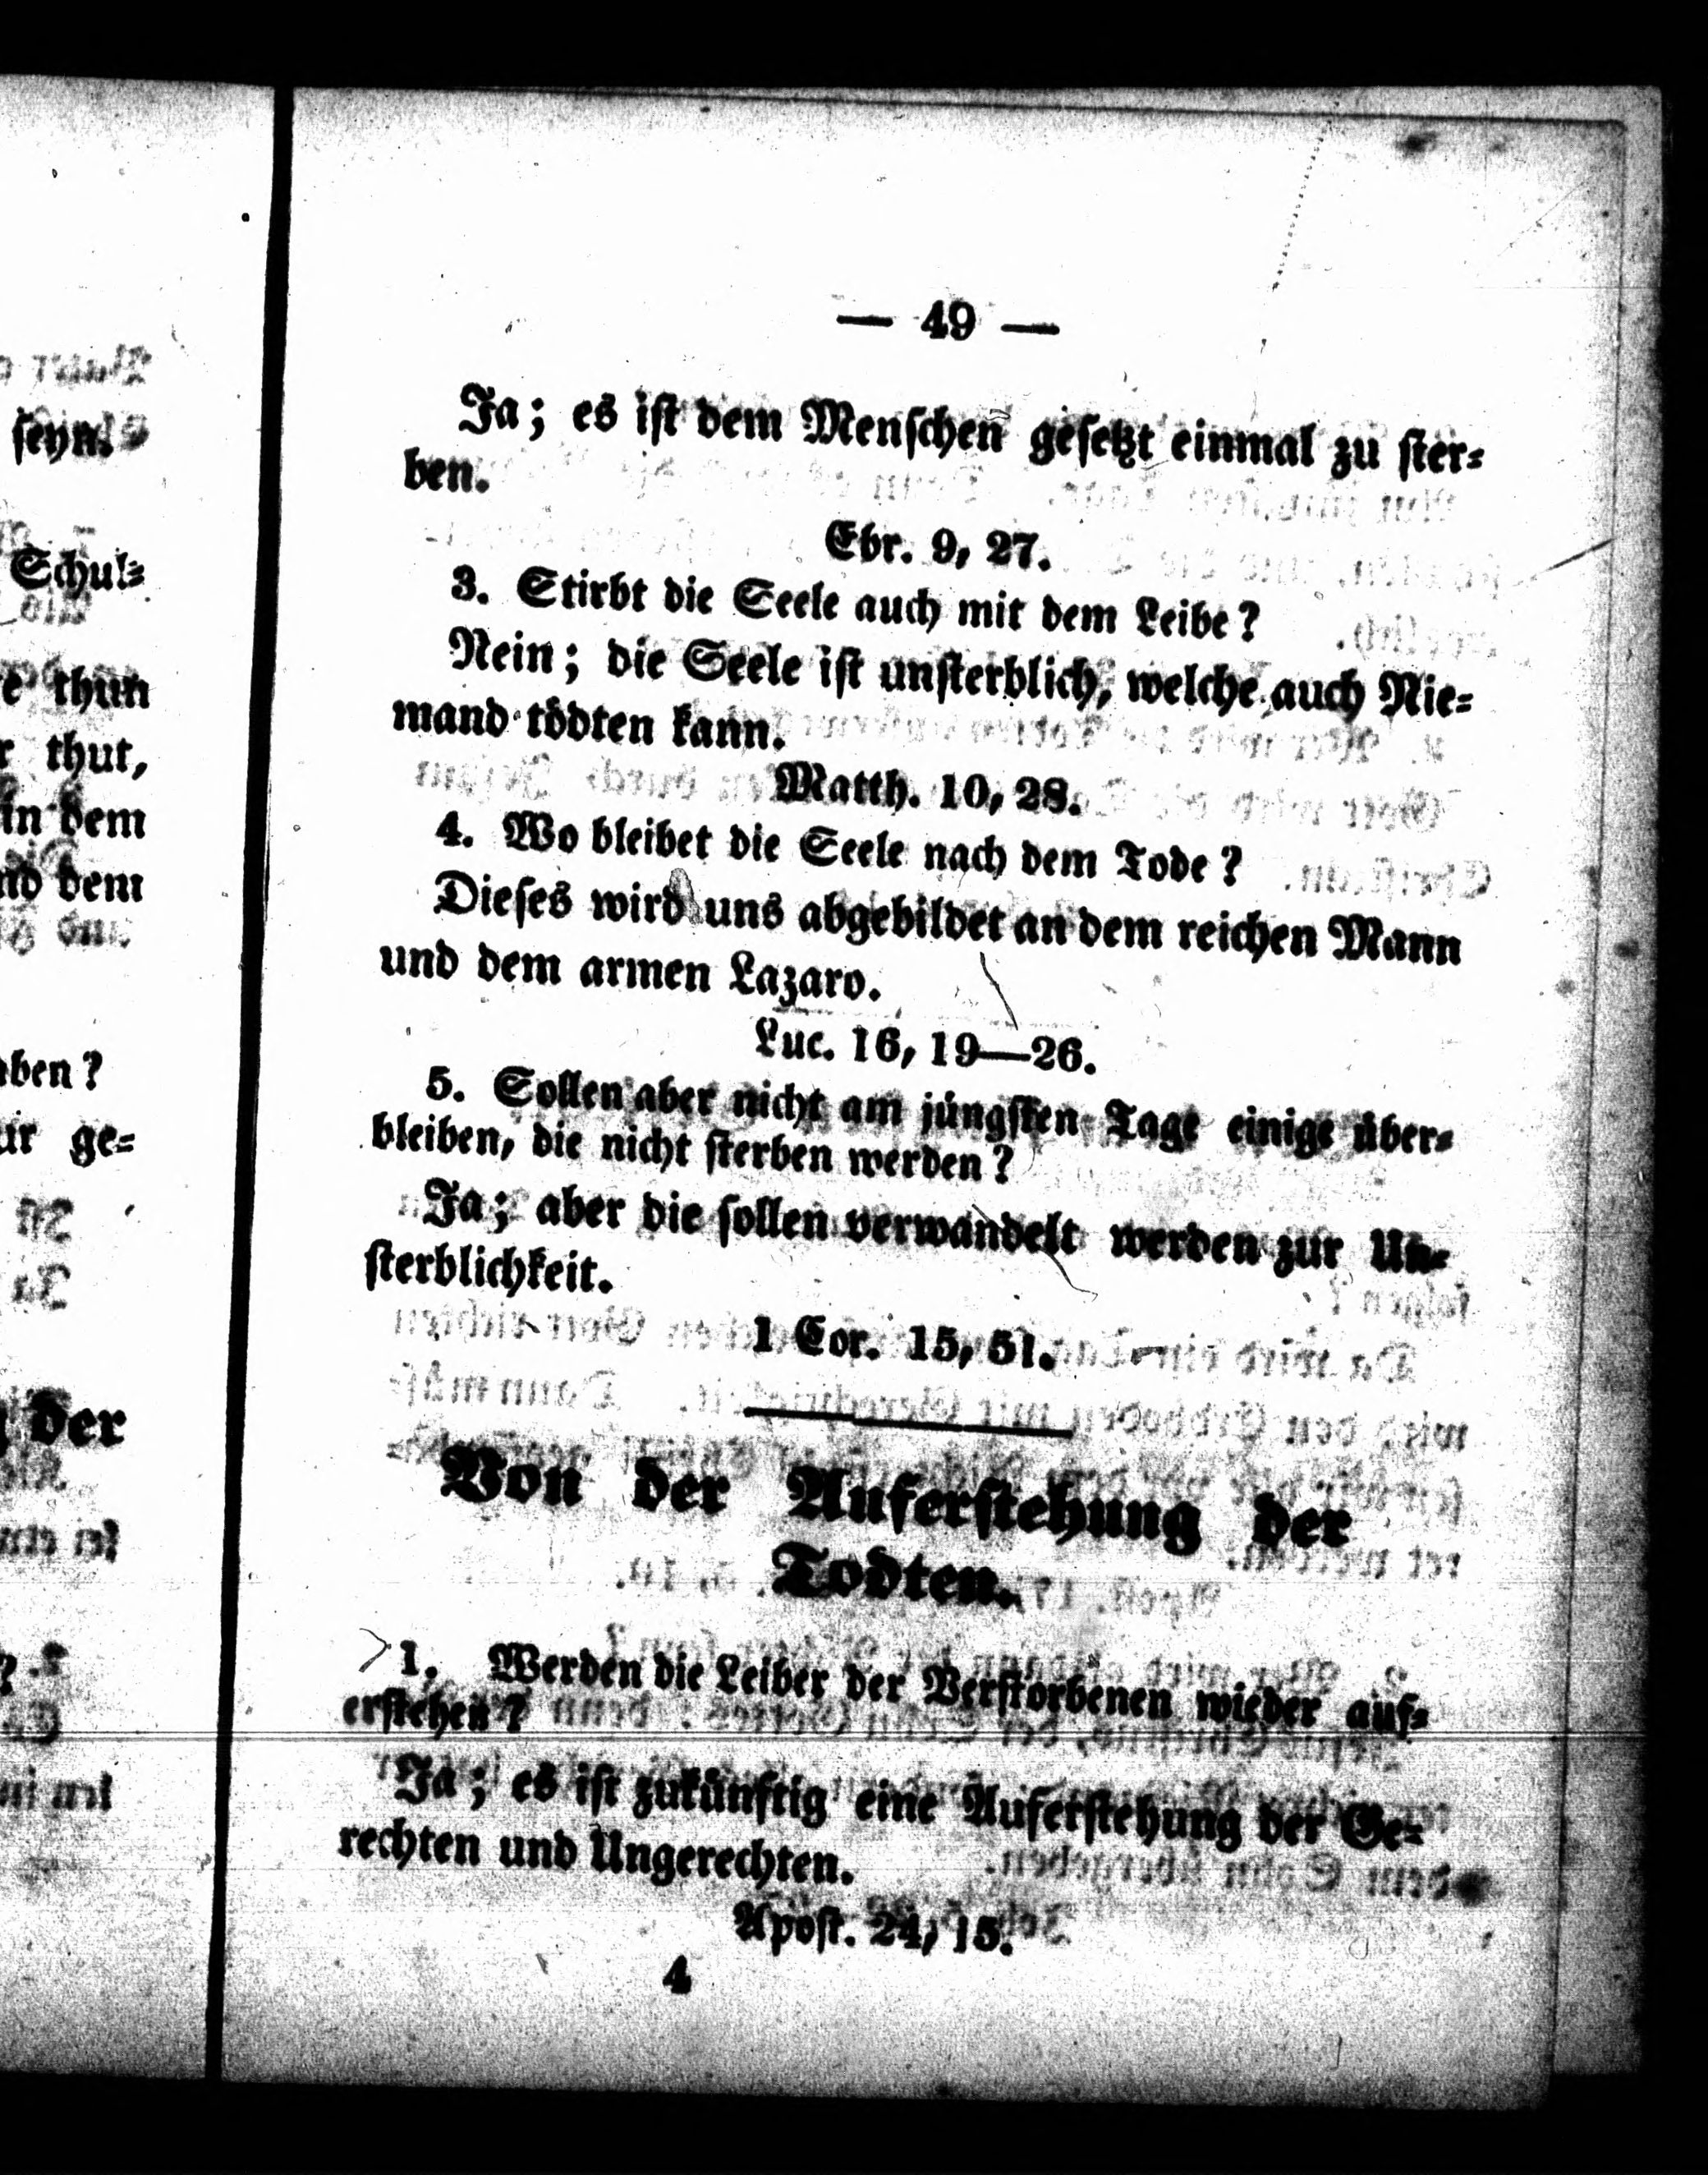 seyn.
Schul=
thun
thut,
in dem
dem
ge=
der
— 49 —
Ja; es ist dem Menschen gesetzt einmal zu ster=
ben.
Ebr. 9, 27.
3. Stirbt die Seele auch mit dem Leibe?
Nein; die Seele ist unsterblich, welche auch Nie=
mand tödten kann.
Matth. 10, 28.
4. Wo bleibet die Seele nach dem Tode?
Dieses wird uns abgebildet an dem reichen Mann
und dem armen Lazaro.
Luc. 16, 19—26.
5. Sollen aber nicht am jüngsten Tage einige über=
bleiben, die nicht sterben werden?
Ja; aber die sollen verwandelt werden zur Un=
sterblichkeit.
1 Cor. 15, 51.
Von der Auferstehung der
Todten.
1. Werden die Leiber der Verstorbenen wieder auf=
erstehen?
Ja; es ist zukünftig eine Auferstehung der Ge=
rechten und Ungerechten.
Apost. 24, 15.
4